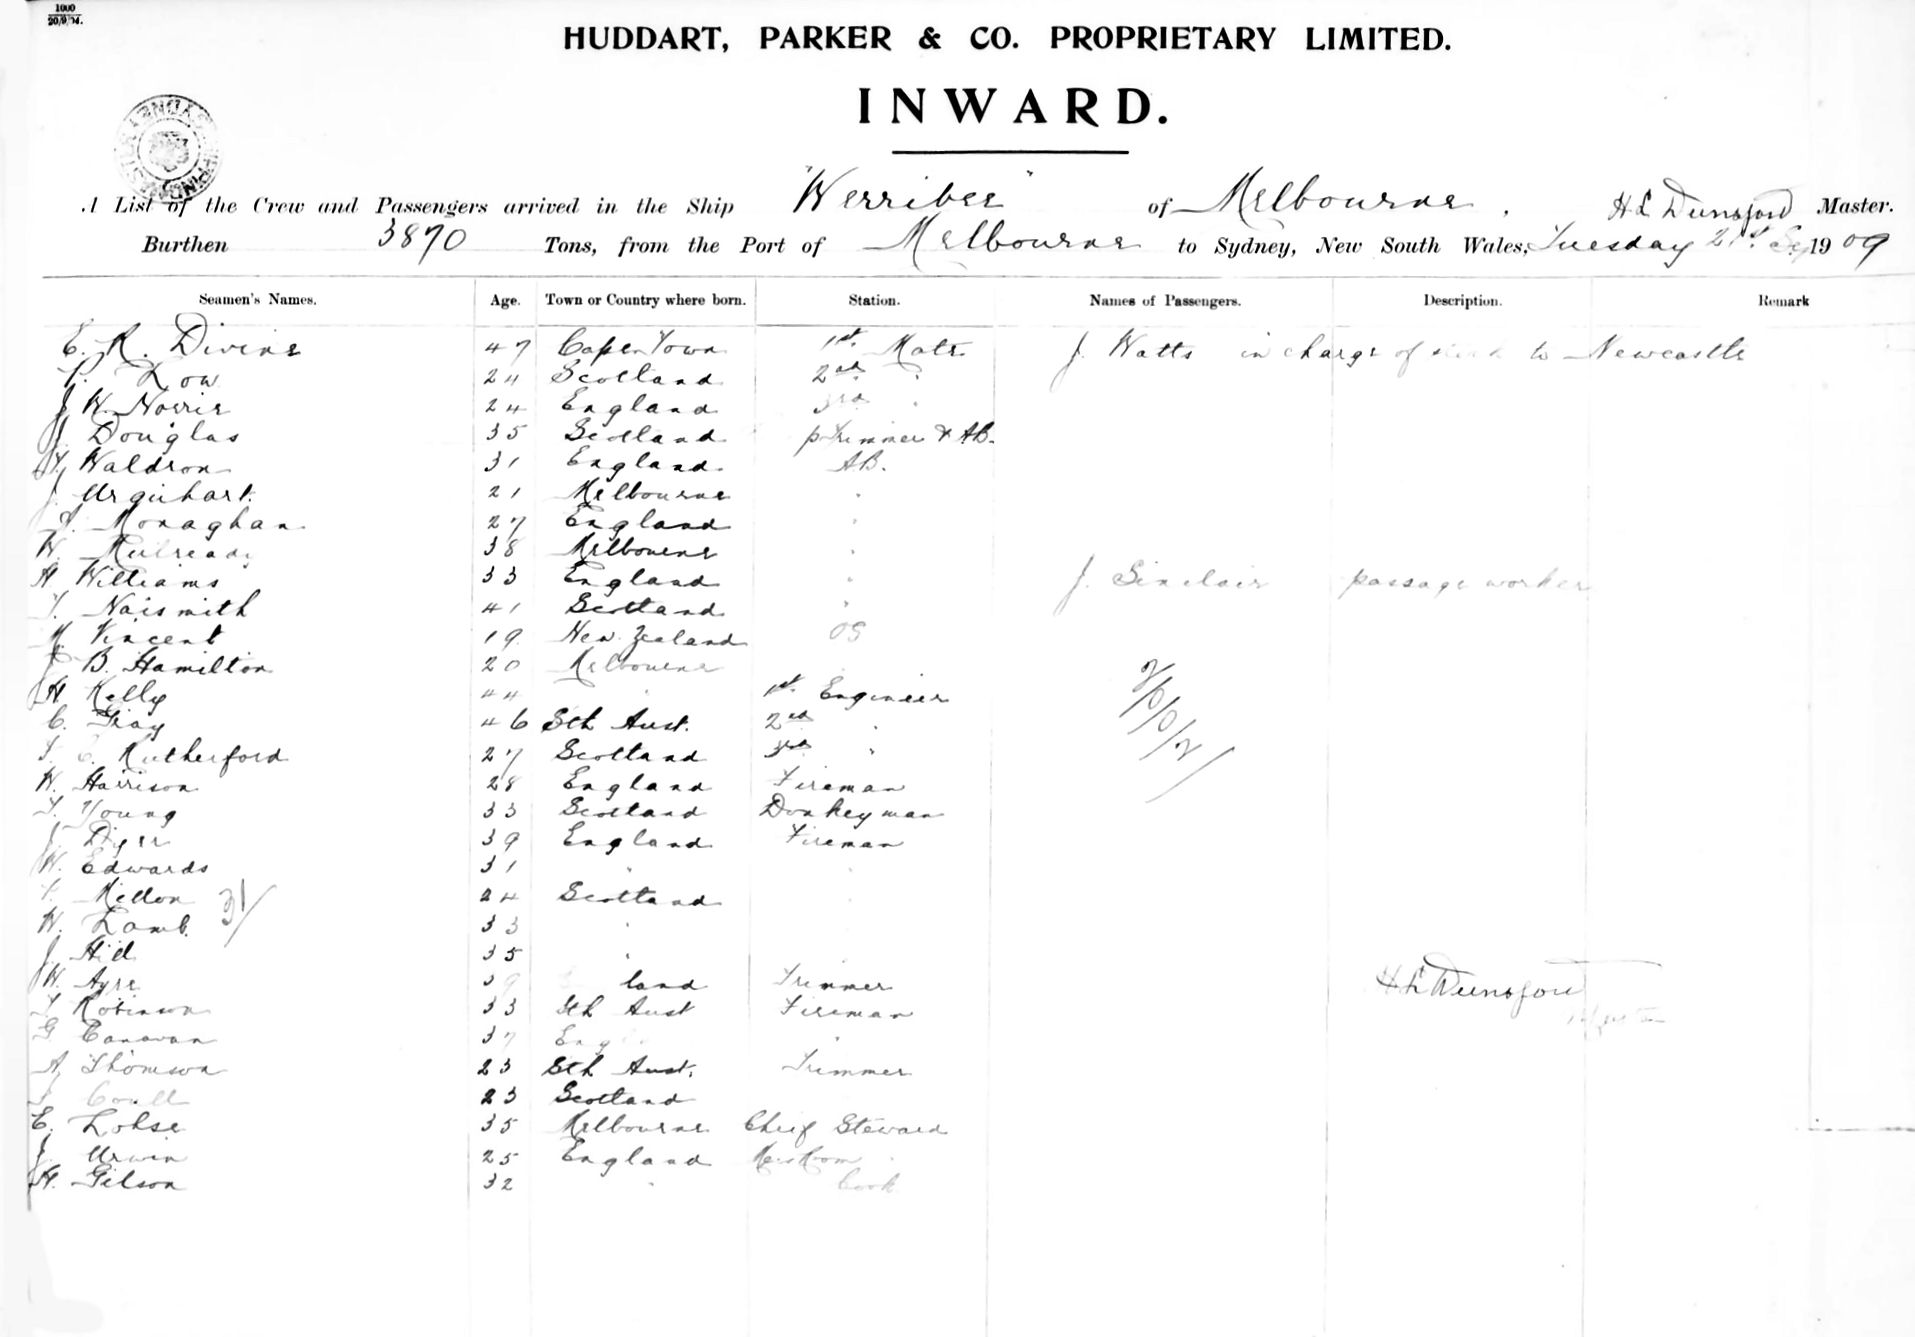 1000
20/9/04.
HUDDART, PARKER & CO. PROPRIETARY LIMITED.
INWARD.
A List of the Crew and Passengers arrived in the Ship "Werribee" of Melbourne, H L Dunsford Master.
Burthen 3870 Tons, from the Port of Melbourne to Sydney, New South Wales, Tuesday 21st Sep 1909
Seamen's Names. Age. Town or Country where born. Station. Names of Passengers. Description. Remark
E. R. Divine 47 Cape Town 1st Mate J. Watts in charge of to Newcastle
Low 24 Scotland 2nd "
J W. Norris 24 England 3rd "
J. Douglas 35 Scotland Trimmer & AB.
T. Waldron 31 England AB.
J. Urquhart 21 Melbourne "
Monaghan 27 England "
W. Mulready 38 Melbourne "
H Williams 33 England " J. Sinclair passage worker
T. Naismith 41 Scotland "
Vincent 19 New Zealand OS
J. B. Hamilton 20 Melbourne
H Kelly 44 " 1st Engineer
C. Gray 46 Sth Aust. 2nd "
Rutherford 27 Scotland 3rd "
2/0/0/2/
W. Harrison 28 England Fireman
T. Young 33 Scotland Donkeyman
J. Dyer 39 England Fireman
W. Edwards 31 " "
Mellon 24 Scotland "
31/
W. Lamb 33 "
J. 35 "
W. Ayre 39 land Trimmer
H L Dunsford
T Robinson 33 Sth Aust Fireman
G Canavan 37 Eng "
A Thomson 23 Sth Aust. Trimmer
Coull 23 Scotland
E. Lohse 35 Melbourne Chief Steward
J Urwin 25 England MessRoom "
H. Gilson 32 " Cook